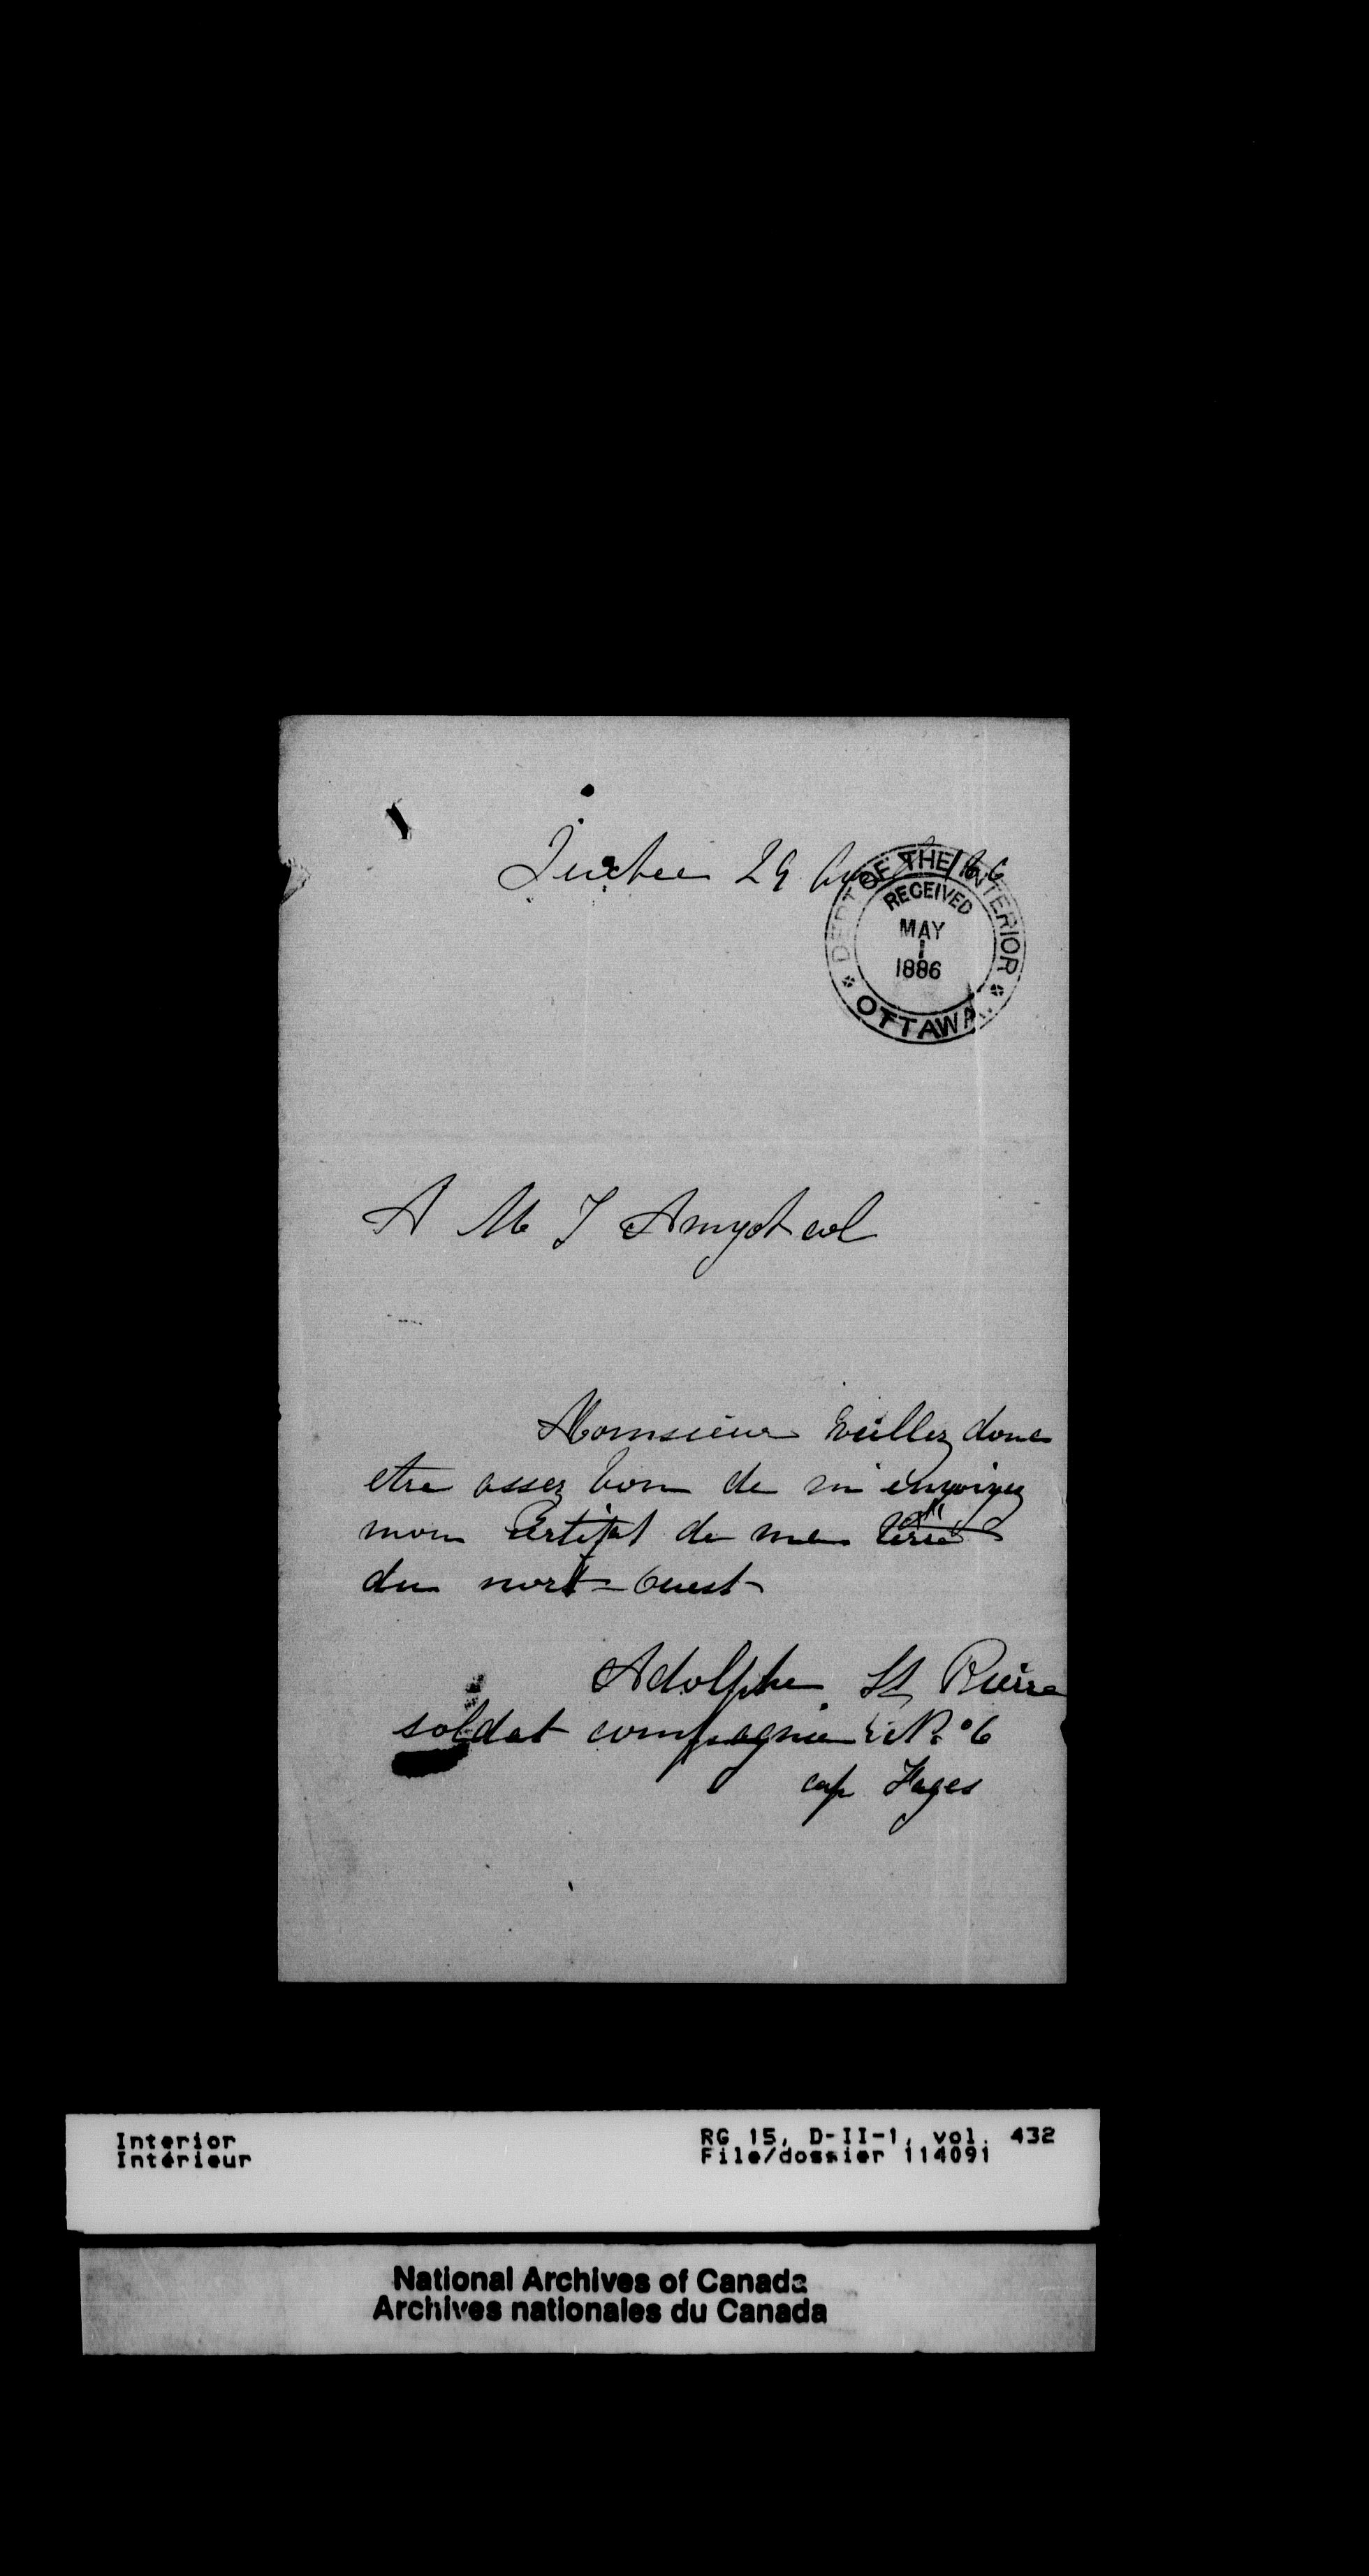 Quebec 29 Avril /86
DEPT OF THE INTERIOR
RECEIVED
MAY
1
1886
OTTAWA
A M J Amyot col
Monsieur veillez donc
etre assez bon de m'envoiyez
mon Certifat de ma
du nort-Ouest
Adolphe St Pierre
soldat compagnie No 6
cap Fages
Interior
Intérieur
RG 15, D-II-1, vol. 432
File/dossier 114091
National Archives of Canada
Archives nationales du Canada